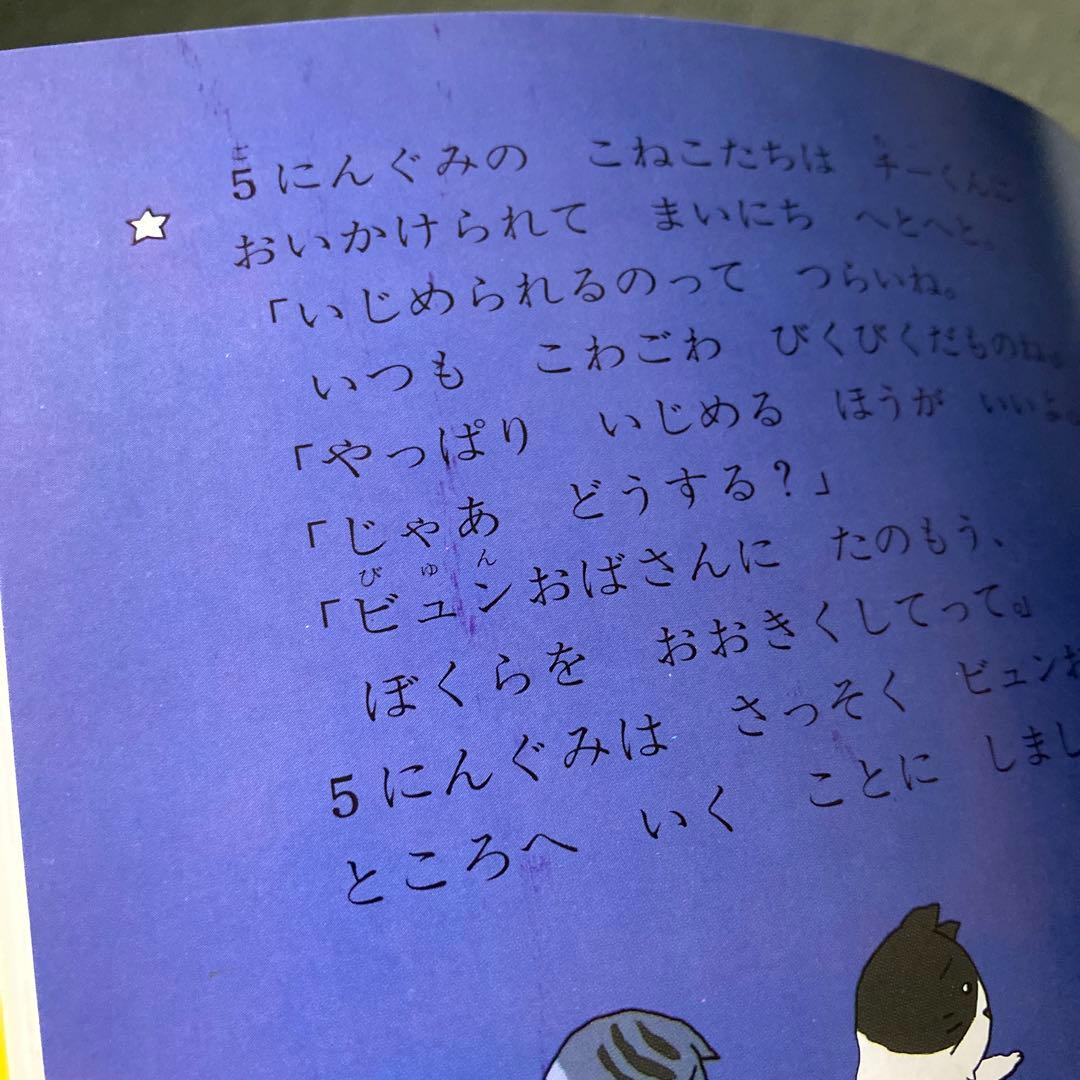 5にんぐみの　こねこたちは　チーくんに
おいかけられて　まいにち　へとへと。
「いじめられるのって　つらいね。
いつも　こわごわ　びくびくだものね。
「やっぱり　いじめる　ほうが　いいよ。
「じゃあ　どうする？」
「ビュンおばさんに　たのもう、
ぼくらを　おおきくしてって。」
5にんぐみは　さっそく　ビュンお
ところへ　いく　ことに　しまし